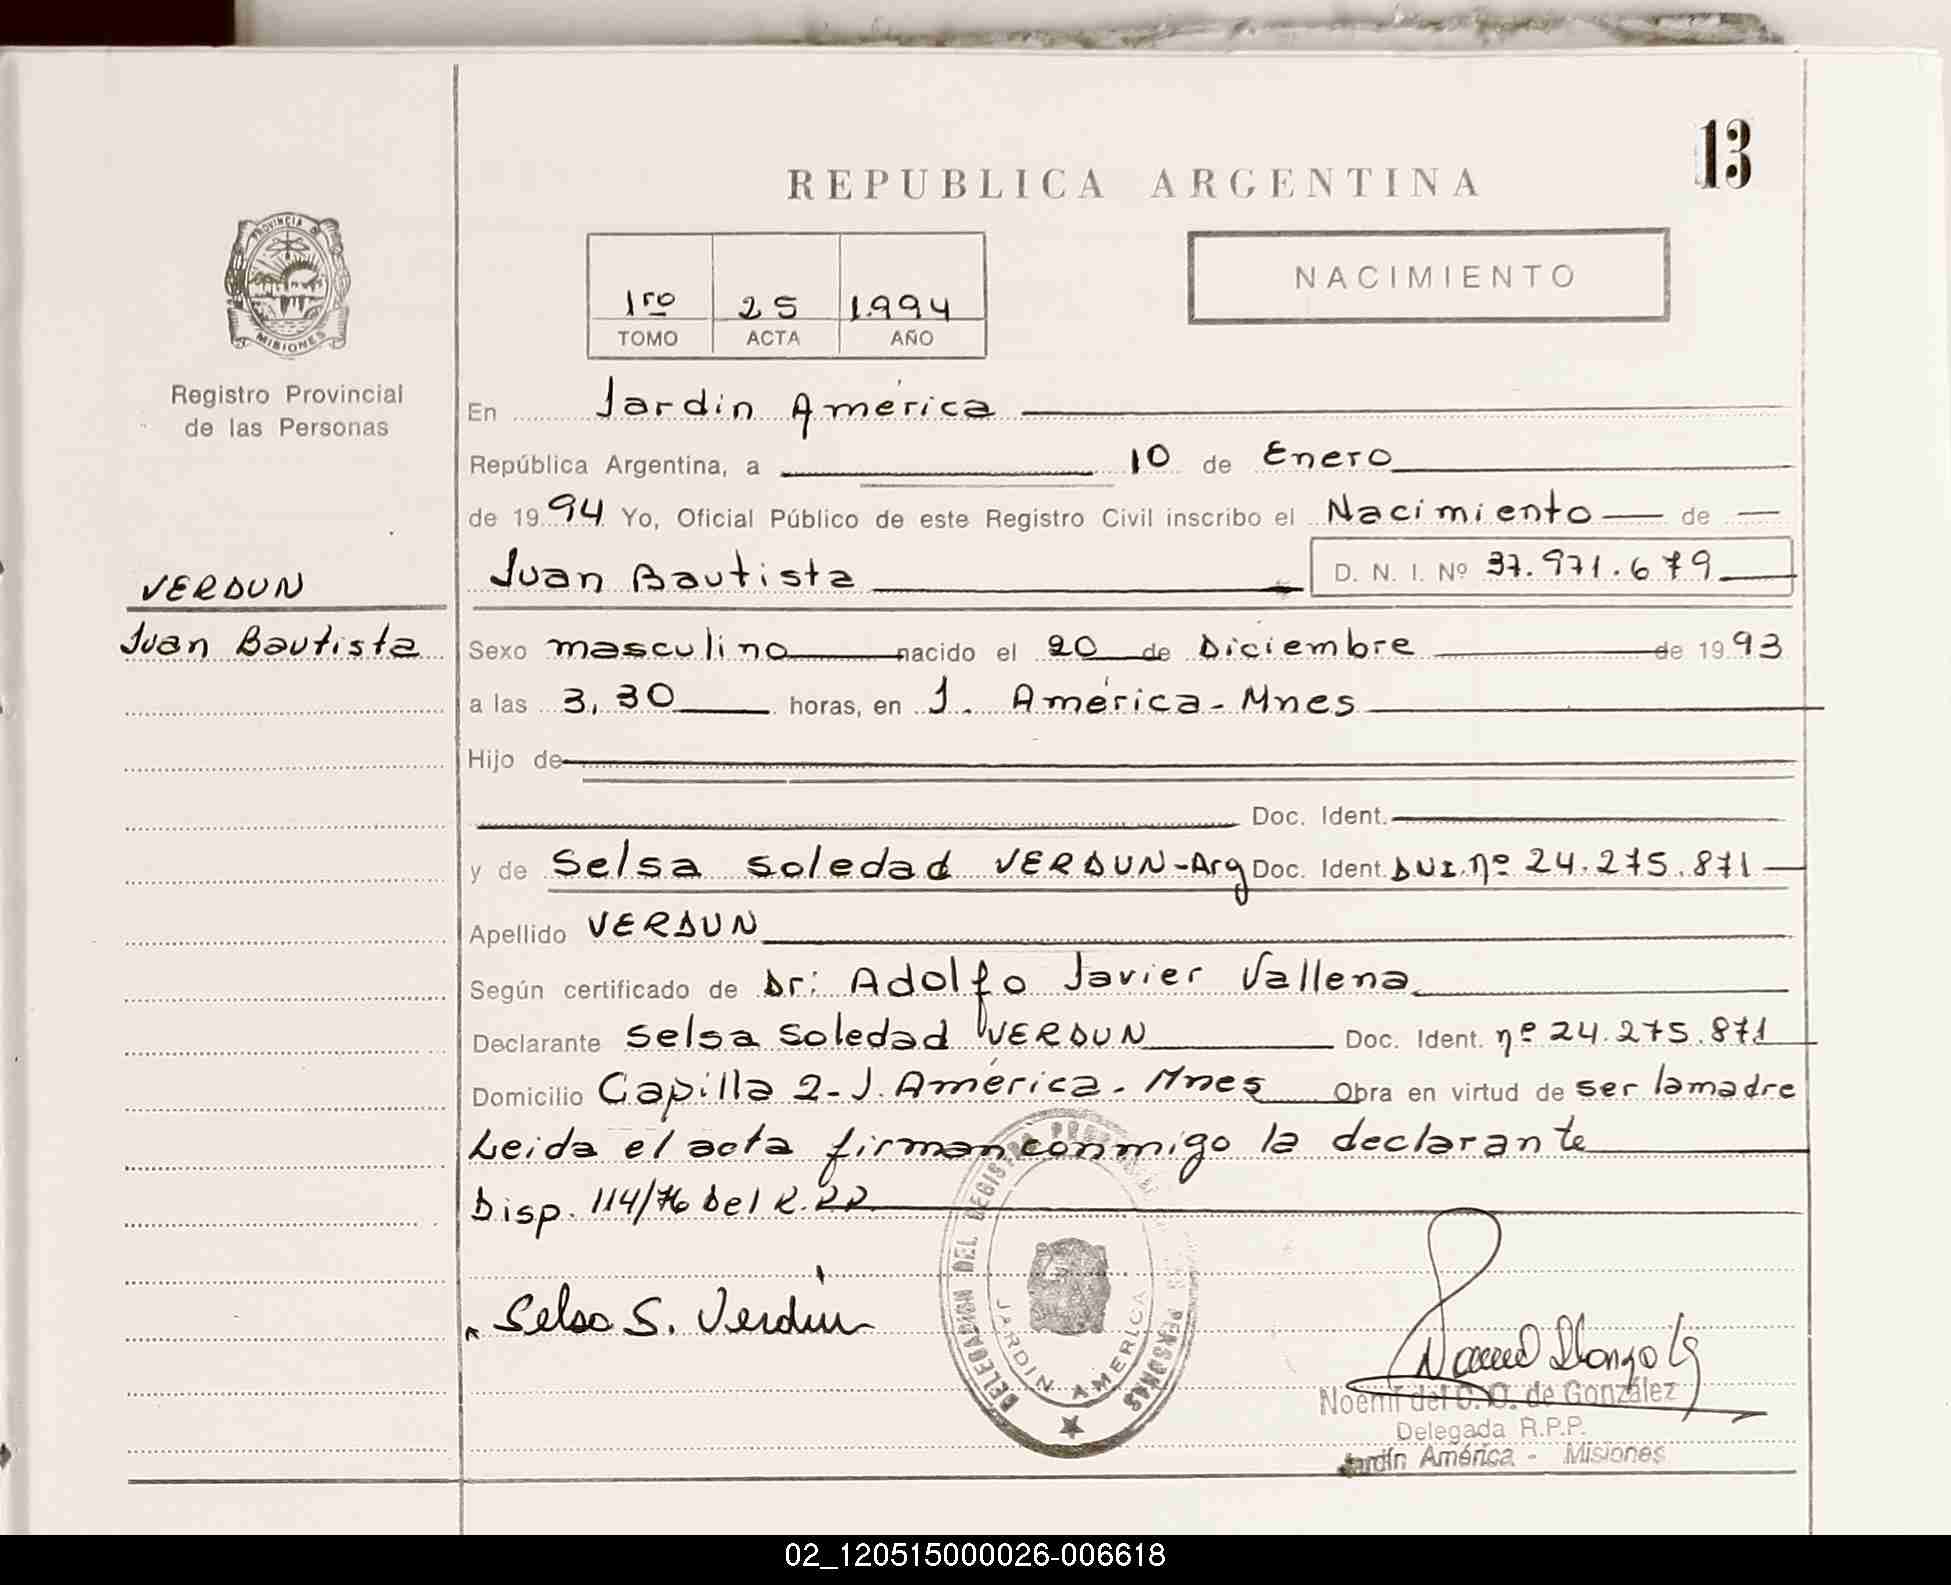 13
REPUBLICA ARGENTINA
PROVINCIA DE
MISIONES
1ro 25 1.994
TOMO ACTA AÑO
NACIMIENTO
Registro Provincial
de las Personas
En Jardín América
República Argentina, a 10 de Enero
de 1994 Yo, Oficial Público de este Registro Civil inscribo el Nacimiento de
VERDUN
Juan Bautista D. N. I. Nº 37.971.679
Juan Bautista
Sexo masculino nacido el 20 de Diciembre de 1993
a las 3,30 horas, en J. América - Mnes
Hijo de
Doc. Ident.
y de Selsa Soledad VERDUN-Arg Doc. Ident. DNI. nº 24.275.871
Apellido VERDUN
Según certificado de Dr: Adolfo Javier Vallena
Declarante Selsa Soledad VERDUN Doc. Ident. nº 24.275.871
Domicilio Capilla 2 - J. América - Mnes Obra en virtud de ser la madre
Leida el acta firman conmigo la declarante
Disp. 114/76 Del R.
DELEGACION DEL REGISTRO PERSONAS
JARDIN AMERICA
Selsa S. Verdún
Noemí del C. O. de González
Delegada R.P.P.
Jardín América - Misiones
02_120515000026-006618